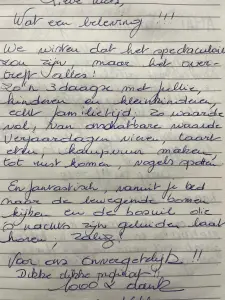 Wat een beleving !!!
We wisten dat het spectaculair
zou zijn, maar het over-
treft alles!
Zo'n 3 daagse met jullie,
kinderen en kleinkinderen,
echt familietijd, zo waarde
vol, van onschatbare waarde
Verjaardagen vieren, taart
eten, kampvuur maken,
tot rust komen, vogels spotten
En fantastisch, vanuit je bed
naar de bewegende bomen
kijken en de bosuil die
's nachts zijn geluiden laat
horen, zalig!
Voor ons Onvergetelijk !!
Dikke dikke
1000 x dank